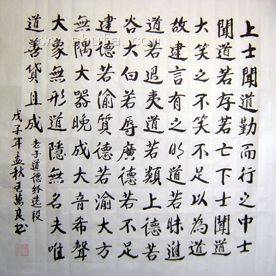 上士聞道勤而行之中士
聞道若存若亡下士聞道
大笑之不笑不足以為道
故建言有之明道若昧進
道若退夷道若類上德若
谷大白若辱廣德若不足
建德若偷質德若渝大方
無隅大器晚成大音希聲
大象無形道隱無名夫唯
道善貸且成
老子道德經選段
戊子年孟秋王萬良书